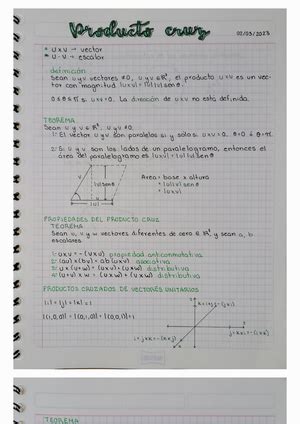 Producto cruz
02/03/2023
* U x V → vector
* U · V → escalar
definición
Sean u y v vectores ≠ 0, u y v ∈ R³, el producto u x v es un vec-
tor con magnitud |u x v| = |u||v| sen θ.
0 ≤ θ ≤ π si u x v = 0. La dirección de u x v no está definida.
TEOREMA
Sean u y v ∈ R³, u y v ≠ 0.
1: El vector u y v son paralelos si y sólo si u x v = 0, θ = 0 ó θ = π.
2: Si u y v son los lados de un paralelogramo, entonces el
área del paralelogramo es |u x v| = |u||v| sen θ
V
|v| sen θ
θ
|u|
Área = base x altura
= |u||v| sen θ
= |u x v|
PROPIEDADES DEL PRODUCTO CRUZ
TEOREMA
Sean u, v y w vectores diferentes de cero ∈ R³ y sean a, b
escalares.
1: u x v = -(v x u) propiedad anticonmutativa
2: (au) x (bv) = ab (u x v) asociativa
3: u x (v + w) = (u x v) + (u x w) distributiva
4: (u + v) x w = (u x w) + (v x w) distributiva
PRODUCTOS CRUZADOS DE VECTORES UNITARIOS
|i| = |j| = |k| = 1
|(1,0,0)| = |(0,1,0)| = |(0,0,1)| = 1
k = i x j = -(j x i)
j = k x i = -(i x k)
i = j x k = -(k x j)
TEOREMA